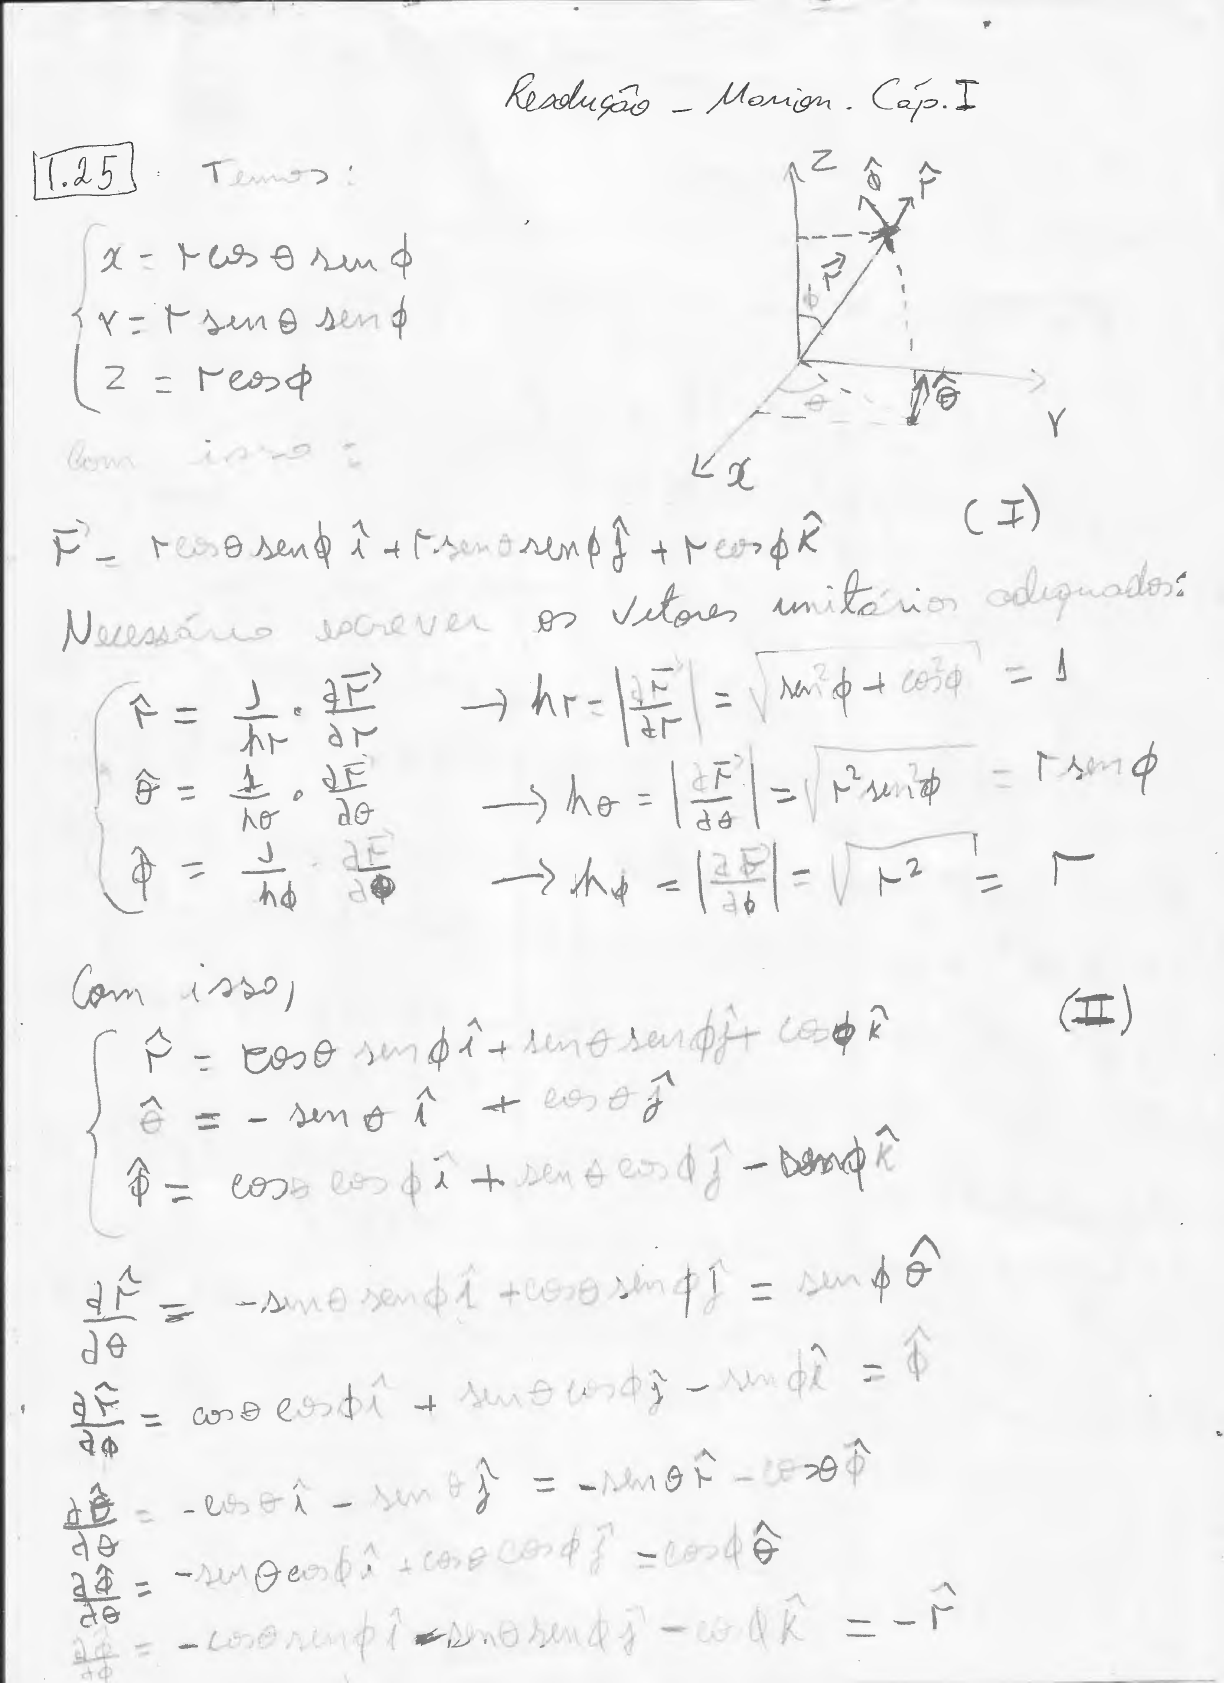 Resolução - Marion. Cáp. I
1.25 Temos:
x = r cos θ sen ϕ
Y = r sen θ sen ϕ
Z = r cos ϕ
Z ϕ̂ r̂
r⃗
ϕ
θ θ̂
Y
x
Com isso:
r⃗ = r cos θ sen ϕ î + r sen θ sen ϕ ĵ + r cos ϕ k̂ (I)
Necessário escrever os vetores unitários adequados:
r̂ = 1/hr · ∂r⃗/∂r → hr = |∂r⃗/∂r| = √(sen²ϕ + cos²ϕ) = 1
θ̂ = 1/hθ · ∂r⃗/∂θ → hθ = |∂r⃗/∂θ| = √(r² sen²ϕ) = r sen ϕ
ϕ̂ = 1/hϕ · ∂r⃗/∂ϕ → hϕ = |∂r⃗/∂ϕ| = √(r²) = r
Com isso,
(II)
r̂ = cos θ sen ϕ î + sen θ sen ϕ ĵ + cos ϕ k̂
θ̂ = - sen θ î + cos θ ĵ
ϕ̂ = cos θ cos ϕ î + sen θ cos ϕ ĵ - sen ϕ k̂
∂r̂/∂θ = - sen θ sen ϕ î + cos θ sen ϕ ĵ = sen ϕ θ̂
∂r̂/∂ϕ = cos θ cos ϕ î + sen θ cos ϕ ĵ - sen ϕ î = ϕ̂
∂θ̂/∂θ = - cos θ î - sen θ ĵ = - sen θ r̂ - cos θ ϕ̂
∂ϕ̂/∂θ = - sen θ cos ϕ î + cos θ cos ϕ ĵ = cos ϕ θ̂
∂ϕ̂/∂ϕ = - cos θ sen ϕ î - sen θ sen ϕ ĵ - cos ϕ k̂ = - r̂